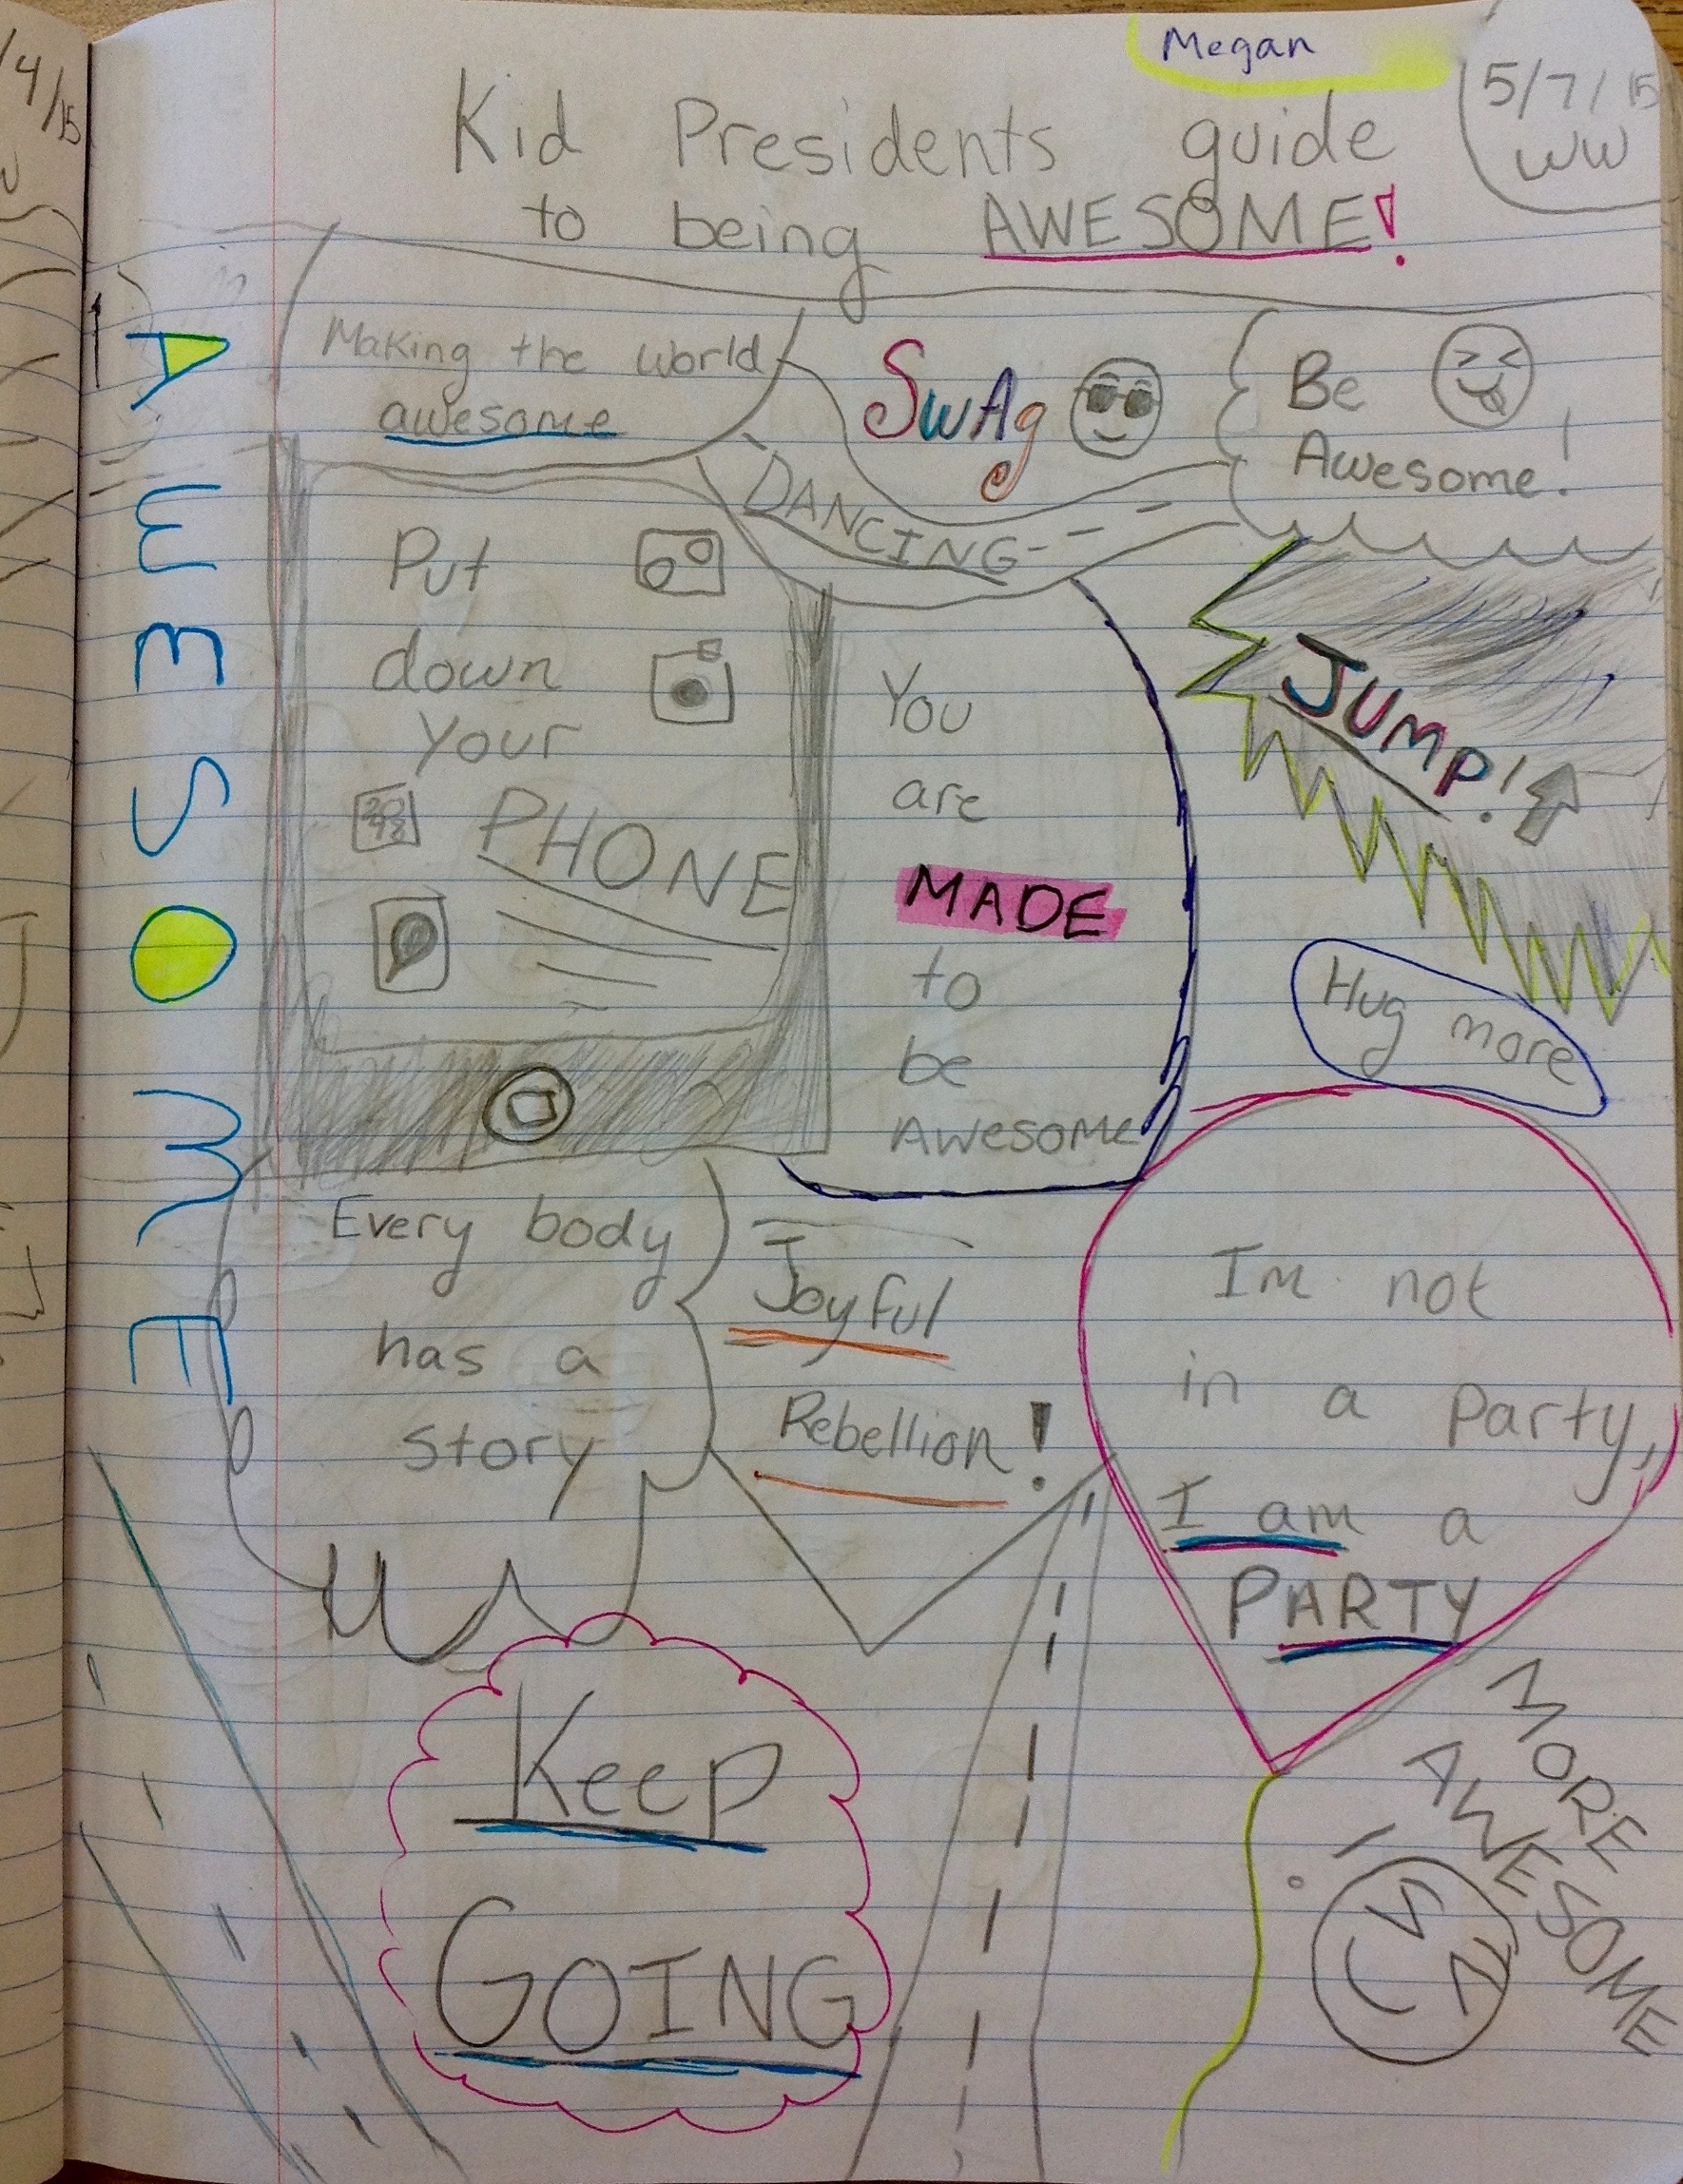 Megan
5/7/15
WW
Kid Presidents guide
to being AWESOME!
4/15
AWESOME
Making the world
awesome
SwAg
Be
Awesome!
DANCING
Put
down
your
PHONE
You
are
MADE
to
be
AWESOME
JUMP!
Hug more
Every body
has a
story
Joyful
Rebellion!
Im not
in a party,
I am a
PARTY
Keep
GOING
MORE
AWESOME